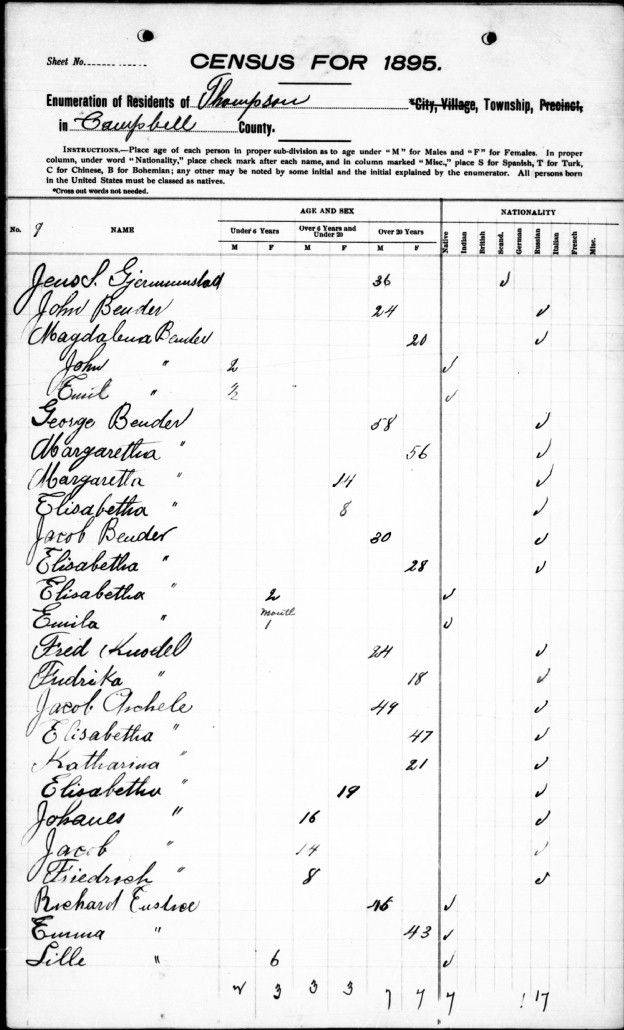 Sheet No.
CENSUS FOR 1895.
Enumeration of Residents of Thompson *City, Village, Township, Precinct,
in Campbell County.
INSTRUCTIONS.—Place age of each person in proper sub-division as to age under "M" for Males and "F" for Females. In proper
column, under word "Nationality," place check mark after each name, and in column marked "Misc.," place S for Spanish, T for Turk,
C for Chinese, B for Bohemian; any other may be noted by some initial and the initial explained by the enumerator. All persons born
in the United States must be classed as natives.
*Cross out words not needed.
AGE AND SEX NATIONALITY
No. 9 NAME Under 6 Years Over 6 Years and Under 20 Over 20 Years Native Indian British Scand. German Russian Italian French Misc.
M F M F M F
Jens S. Gjermunstad 36 ✓
John Bender 24 ✓
Magdalena Bender 20 ✓
John " 2 ✓
Emil " 1/2 ✓
George Bender 58 ✓
Margaretha " 56 ✓
Margaretta " 14 ✓
Elisabetha " 8 ✓
Jacob Bender 30 ✓
Elisabetha " 28 ✓
Elisabetha " 2 ✓
Emila " month 1 ✓
Fred Knodel 24 ✓
Fudrika " 18 ✓
Jacob 49 ✓
Elisabetha " 47 ✓
Katharina " 21 ✓
Elisabetha " 19 ✓
Johanes " 16 ✓
Jacob " 14 ✓
Friedrich " 8 ✓
Richard Eustice ✓
Emma " 43 ✓
Lille " 6 ✓
2 3 3 3 7 7 7 1 17